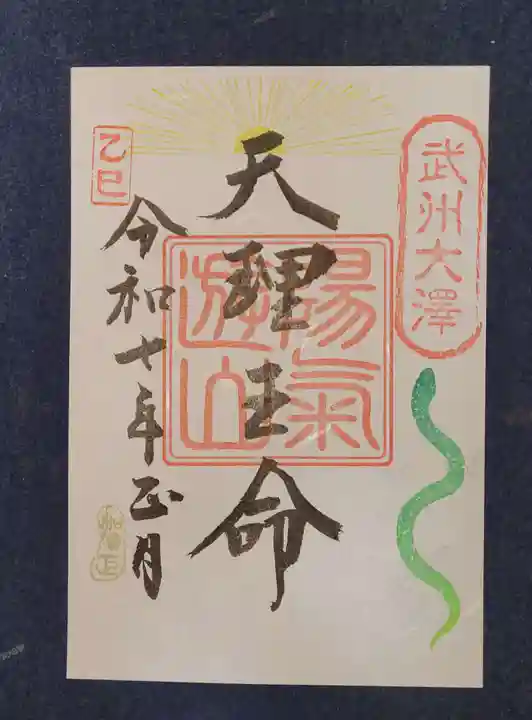 武州大澤
天理王命
陽氣
遊山
乙巳
令和七年正月